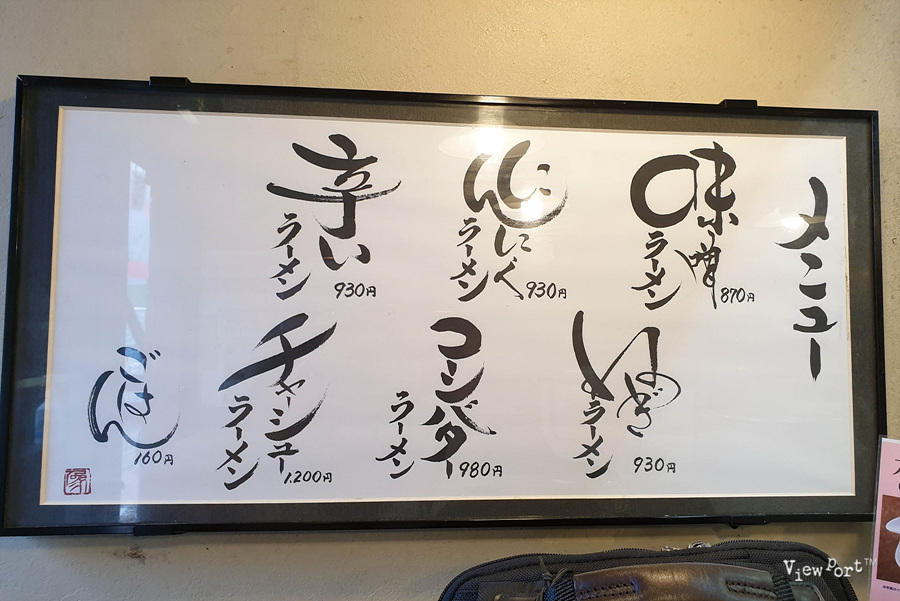 メニュー
味噌
ラーメン
870円
にんにく
ラーメン
930円
辛い
ラーメン
930円
ねぎ
ラーメン
930円
コーンバター
ラーメン
980円
チャーシュー
ラーメン
1,200円
ごはん
160円
ViewPort™